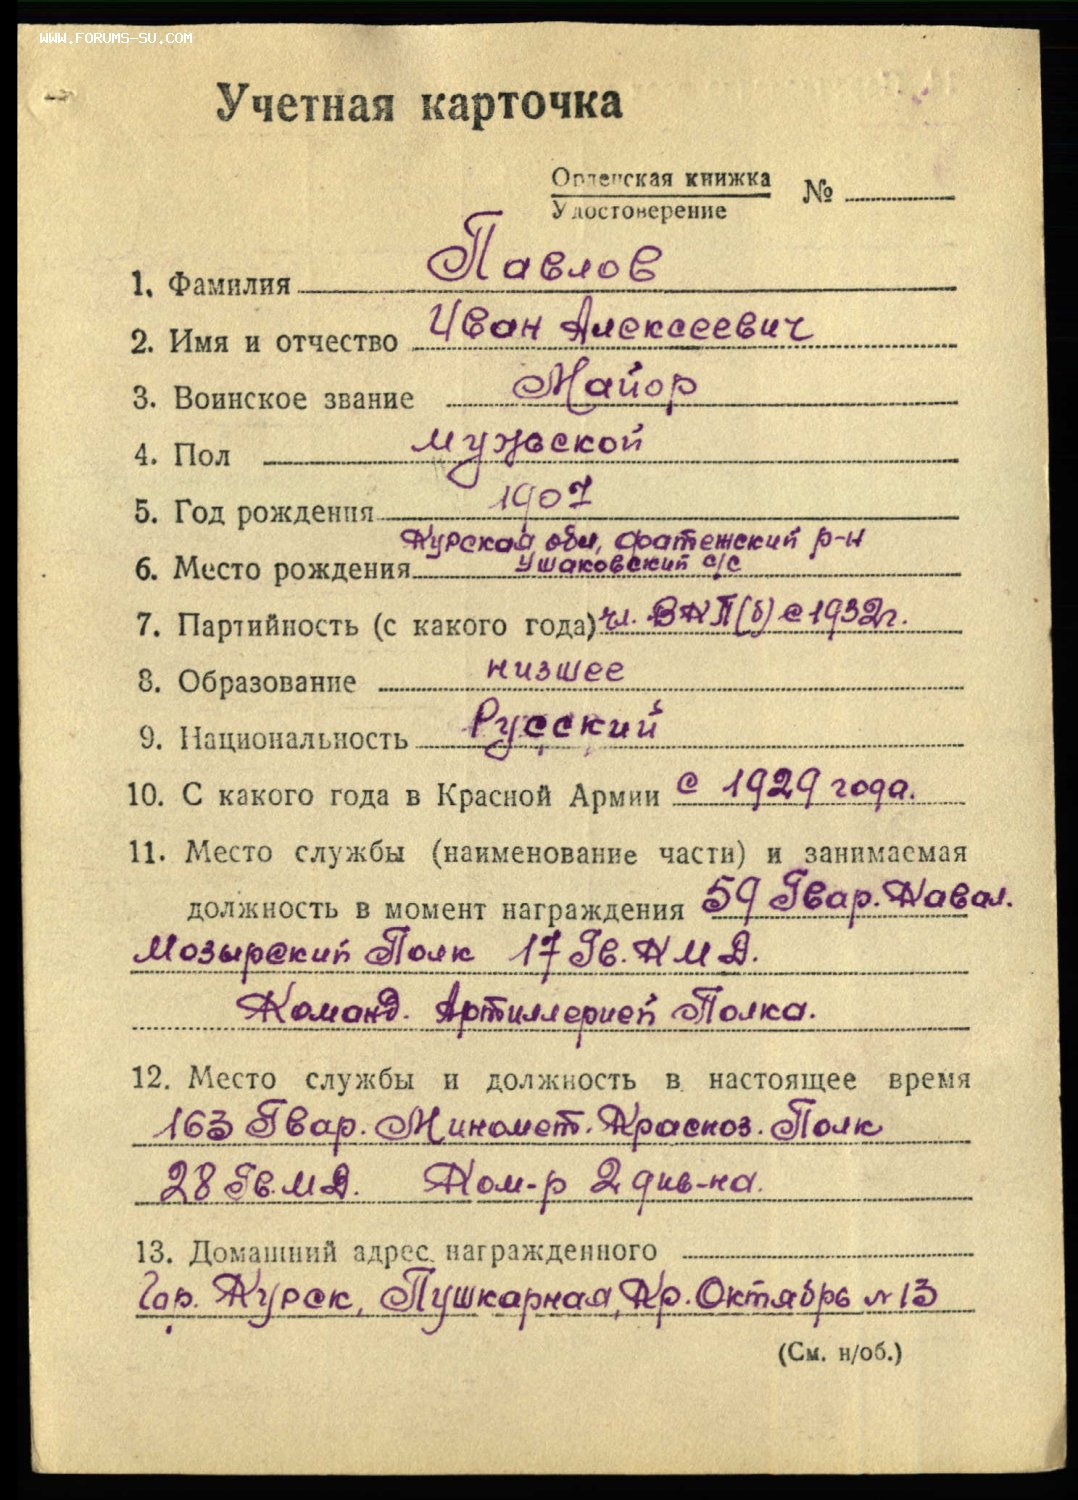 WWW.FORUMS-SU.COM
Учетная карточка
Орденская книжка
Удостоверение
№
1. Фамилия Павлов
2. Имя и отчество Иван Алексеевич
3. Воинское звание Майор
4. Пол мужской
5. Год рождения 1907
Курская обл, фатежский р-н
6. Место рождения Ушаковский с/с
7. Партийность (с какого года) чл. ВКП(б) с 1932г.
8. Образование низшее
9. Национальность Русский
10. С какого года в Красной Армии с 1929 года.
11. Место службы (наименование части) и занимаемая
должность в момент награждения 59 Гвар. Кавал.
Мозырский Полк 17 Гв. К М Д.
Команд. Артиллерией Полка.
12. Место службы и должность в настоящее время
163 Гвар. Миномет. Красноз. Полк
28 Гв. М Д. Ком-р 2 див-на.
13. Домашний адрес награжденного
Гор. Курск, Пушкарная, Кр. Октябрь № 13
(См. н/об.)